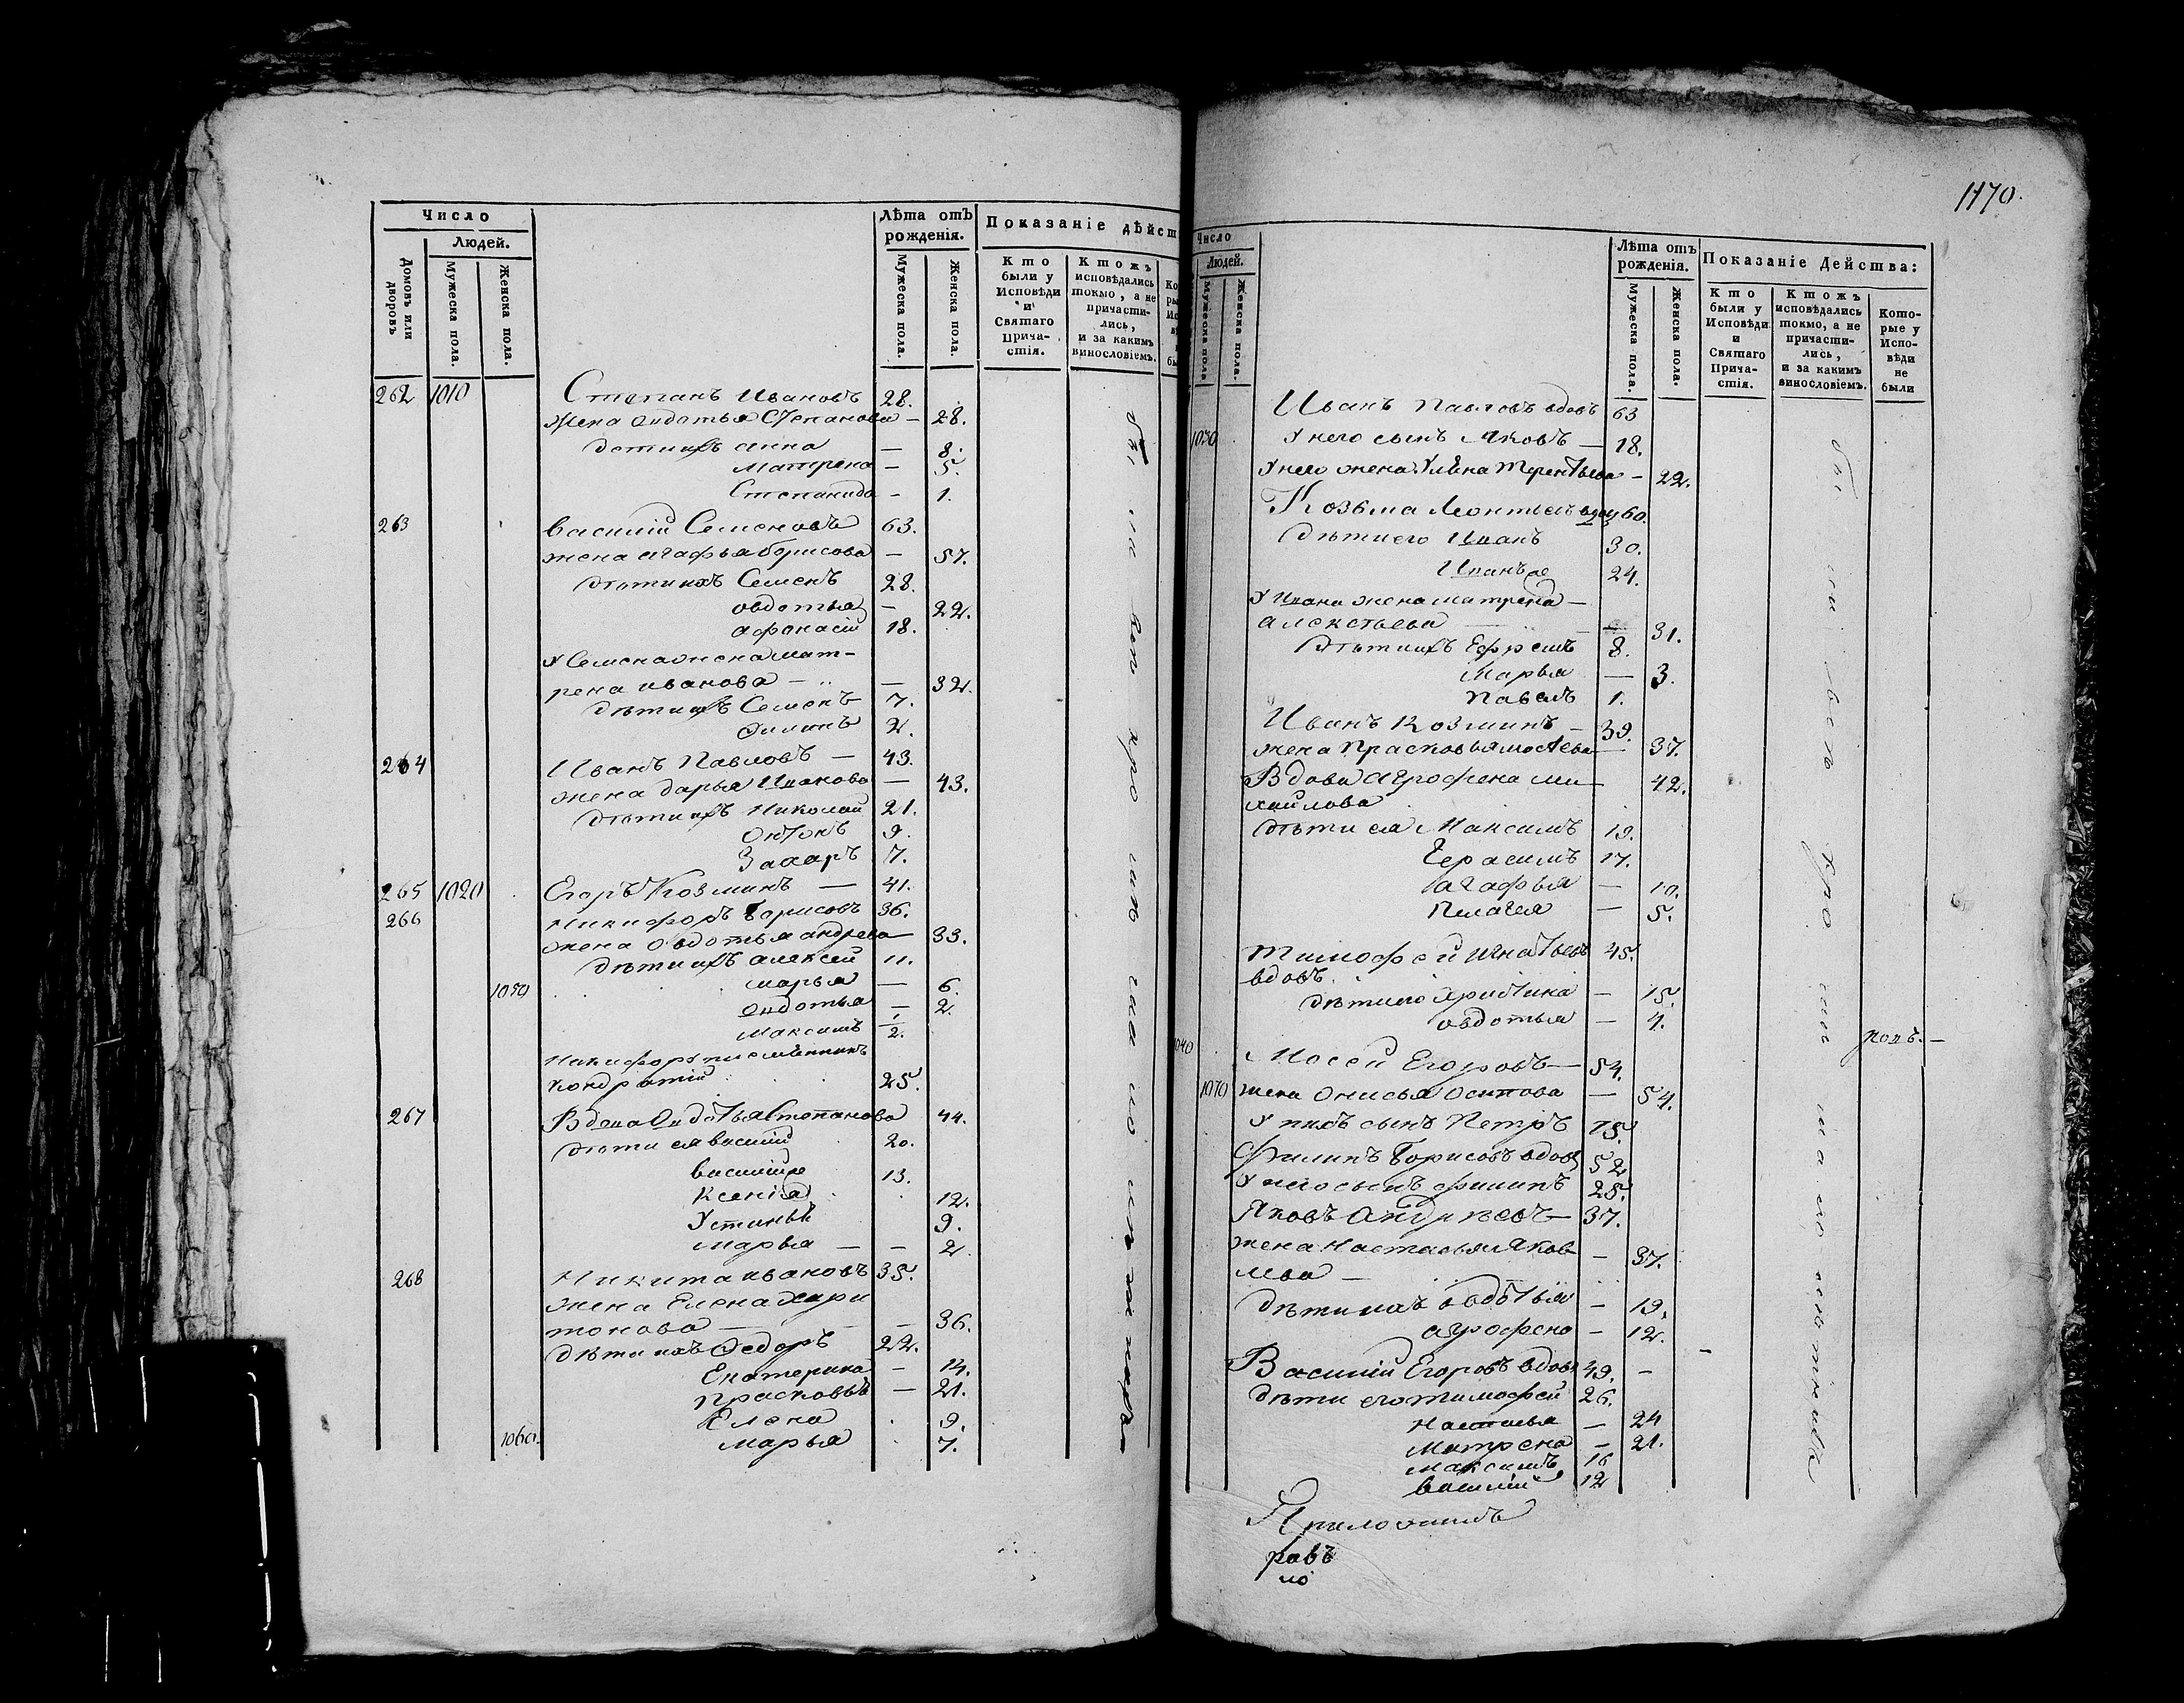 1170.
Число
Людей.
Домовъ или дворовъ
Мужеска пола.
Женска пола.
Лѣта отъ рожденія.
Мужеска пола.
Женска пола.
Показаніе дѣйст
Кто были у Исповѣди и Святаго Прича-стія.
Ктожъ исповѣдались токмо, а не причасти-лись, и за какимъ винословіемъ.
262 1010 Степанъ Ивановъ 28.
жена Овдотья Степанова — 28.
дети ихъ анна — 8.
Матрена — 5.
Степанида — 1.
263 василій Семеновъ 63.
жена агафья борисова — 57.
дѣти ихъ Семенъ 28.
овдотья — 22.
афонасій 18.
У Семена жена мат-
рена иванова — — 32.
дѣти ихъ Семенъ 7.
Филипъ 2.
264 Иванъ Павловъ — 43.
жена дарья Иванова — 43.
дѣти ихъ Николай 21.
Онтонъ 9.
Захаръ 7.
265 1020 Егоръ Козминъ — 41.
266 Никифоръ Борисовъ 36.
жена овдотья андреева 33.
дѣти ихъ алексей 11.
1050 марья — 6.
Овдотья — 2.
Максимъ 1/2.
Никифоръ племянникъ
кондратій 25.
267 Вдова Овдотья Степанова 44.
дѣти ея василій 20.
василій же 13.
Ксенія 12.
Устинья 9.
Марья — — 2.
268 Никита ивановъ 35.
жена Елена хари
тонова — — 36.
дѣти ихъ Федоръ 22.
Екатерина — 14.
Прасковья — 21.
Елена 9.
1060. марья 7.
Число
Людей.
Мужеска пола.
Женска пола.
Лѣта отъ рожденія.
Мужеска пола.
Женска пола.
Показаніе Действа:
Кто были у Исповѣди и Святаго Прича-стія.
Ктожъ исповѣдались токмо, а не причасти-лись, и за какимъ винословіемъ.
Кото-рые у Испо-вѣди не были
Иванъ Павловъ вдовъ 63
1030 У него сынъ Яковъ — 18.
У него жена Улѣна Терентьева — 22.
Козьма Леонтьевъ вдовъ 60.
Дѣти его Иванъ 30.
Иванъ же 24.
У Ивана жена матрена —
алексѣева 31.
Дѣти ихъ Ефремъ 8.
Марья — 3.
Павелъ 1.
Иванъ Козминъ — 39.
жена Прасковья мосеева — 37.
Вдова агрофена ми 42.
хайлова
дѣти ея Максимъ 19.
Герасимъ 17.
агафья — 10.
Пелагея — 5.
Тимофей игнатьевъ 45.
вдовъ.
дѣти его Христина — 15.
овдотья — 4.
1040 Мосей Егоровъ — 54.
1070 жена Онисья Осипова — 54.
У нихъ сынъ Петръ 15.
Филипъ Борисовъ вдовъ 52
У него сынъ филипъ 25.
Яковъ Андреевъ — 37.
жена настасья Яков — 37.
лева —
дѣти ихъ овдотья — 19.
агрофена — 12.
Василій Егоровъ вдовъ 49. —
дѣти его тимофей 26.
настасья — 24
Матрена — 21.
максимъ 16
василій 12